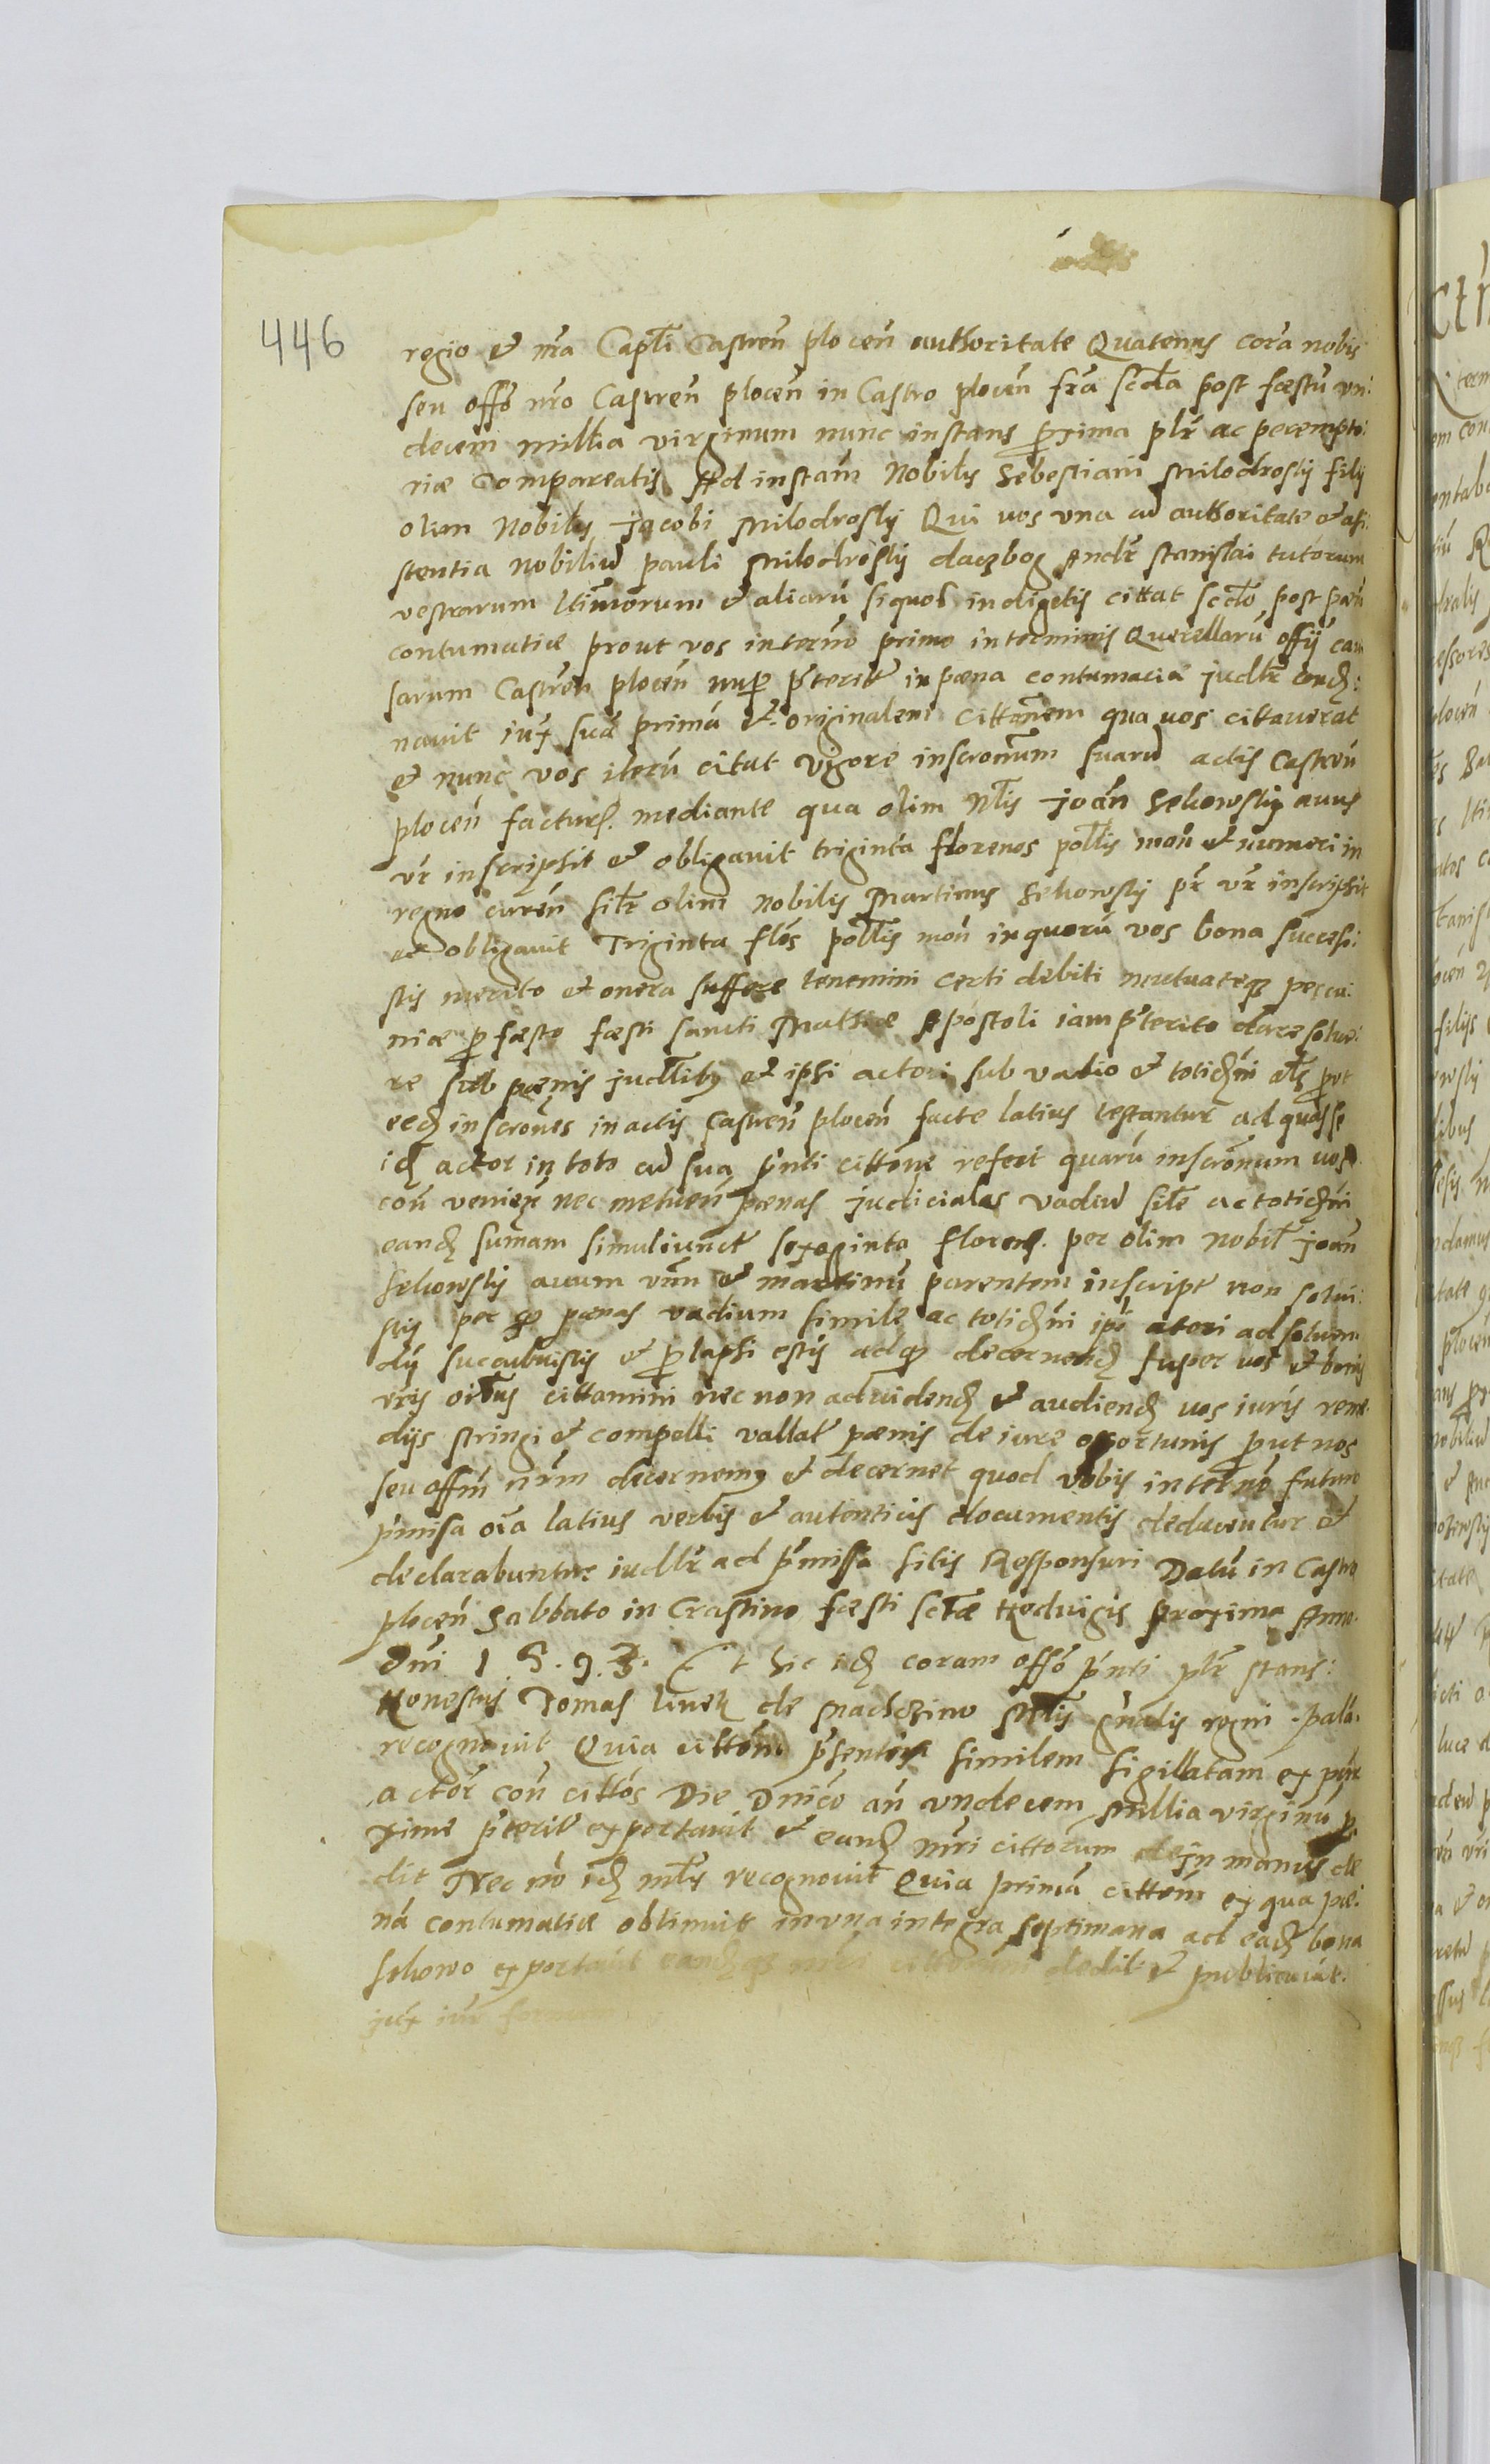 446
regio et nrã Captł Castreñ ploceñ authoritate Quatenus corã nobis
seu offõ nrõ Castreñ plocẽn in Castro plocẽn frã sctda post fœstũ vn:
decem millia virginum nunc instans proxima plr̃ ac perempto:
riæ Compareatis Ad instañ Nobilis Sebestiani Milodrosky filij
olim Nobilis Jacobi Milodrosky Qui vos vna cũ authoritate et asi:
stentia Nobiliũ pauli Milodrosky daczbog Andr̃ stanislai tutorum
vestrorum ltĩmorum et aliorũ siquos indigetis cittat sctdõ post
contumatiæ prout vos interm̃o primo in terminis Querellarũ offij cau
sarum Castreñ plocẽn nup pr̃terit̃ in pœna contumacia judtr̃ cond:
navit iux̃ suã primã et originalem cittõnem qua vos cittaverat
et nunc vos iterũ citat vigore inscronum suarũ actis Castreñ
plocẽn factar. mediante qua olim Nłis joañ Sekowsky avus
vr̃ inscripsit et obligavit triginta florenos połłis moñ et numeri in
regno cureñ silr̃ olim Nobilis Martinus Sekowsky pr̃ vr̃ inscripsit
et obligavit Triginta flõs połłis moñ in quorũ vos bona successi:
stis merito et onera suffere tenemini certi debiti mutuateq pecu:
niæ p fœsto fœsti sancti Mathiæ Apostoli iam pr̃terito dare solve:
re sub pœnis judłibq et ipsi actori sub vadio et totidm
eed inscrones in actis Castreñ plocẽn facte latius testantur ad quas se
id actor in toto cũ sua pñti cittõne refert quarũ inscronum vos
coñ nec metueñ pœnas judiciales vadiũ silr̃ ac totidm
eand sumam simuliunct̃ sexaginta floren. per olim nobił joañ
Sekowsky avum vrm et martinũ parentem inscript̃ non solvi:
stis per qd pœnas vadium simile ac totidm ipi atori adsolven:
dũ succubuistis et p lapsi estis adqd decernend super vos et bonis
vris oibus cittamini nec non advidend et audiend vos iuris reme
dijs stringi et compelli vallat̃ pœnis de iure oportunis put nos
seu offm nrm decernemq et decernet quod vobis interm̃o futuro
pr̃missa oia latius verbis et autenticis documentis deducentur et
declarabuntur iudtr̃ ad pr̃missa sitis Responsuri Datũ in Castro
plocẽn Sabbato in Crastino fœsti sctæ Hedvigis proxima Anno
Dni 1 5 9 3. Et hic id coram offõ pñti plr̃ stans:
Honestus Tomas de Mnłis gñalis regni pala:
recognovit Quia cittõm pr̃sentem similem sigillatam ex pte
actor̃ coñ cittõs Die Dnico añ vndecem Millia virginũ p
xime pr̃terit̃ exportavit et eand mri cittorum in manus de
dit Nec nõ id mnłis recognovit Quia primã cittõm ex qua pæ:
nã contumatiæ obtinuit in vna integra septimana ad ead bona
Sekowo exportavit eand cittorum dedit et publicavit
jux̃ iur̃ formam